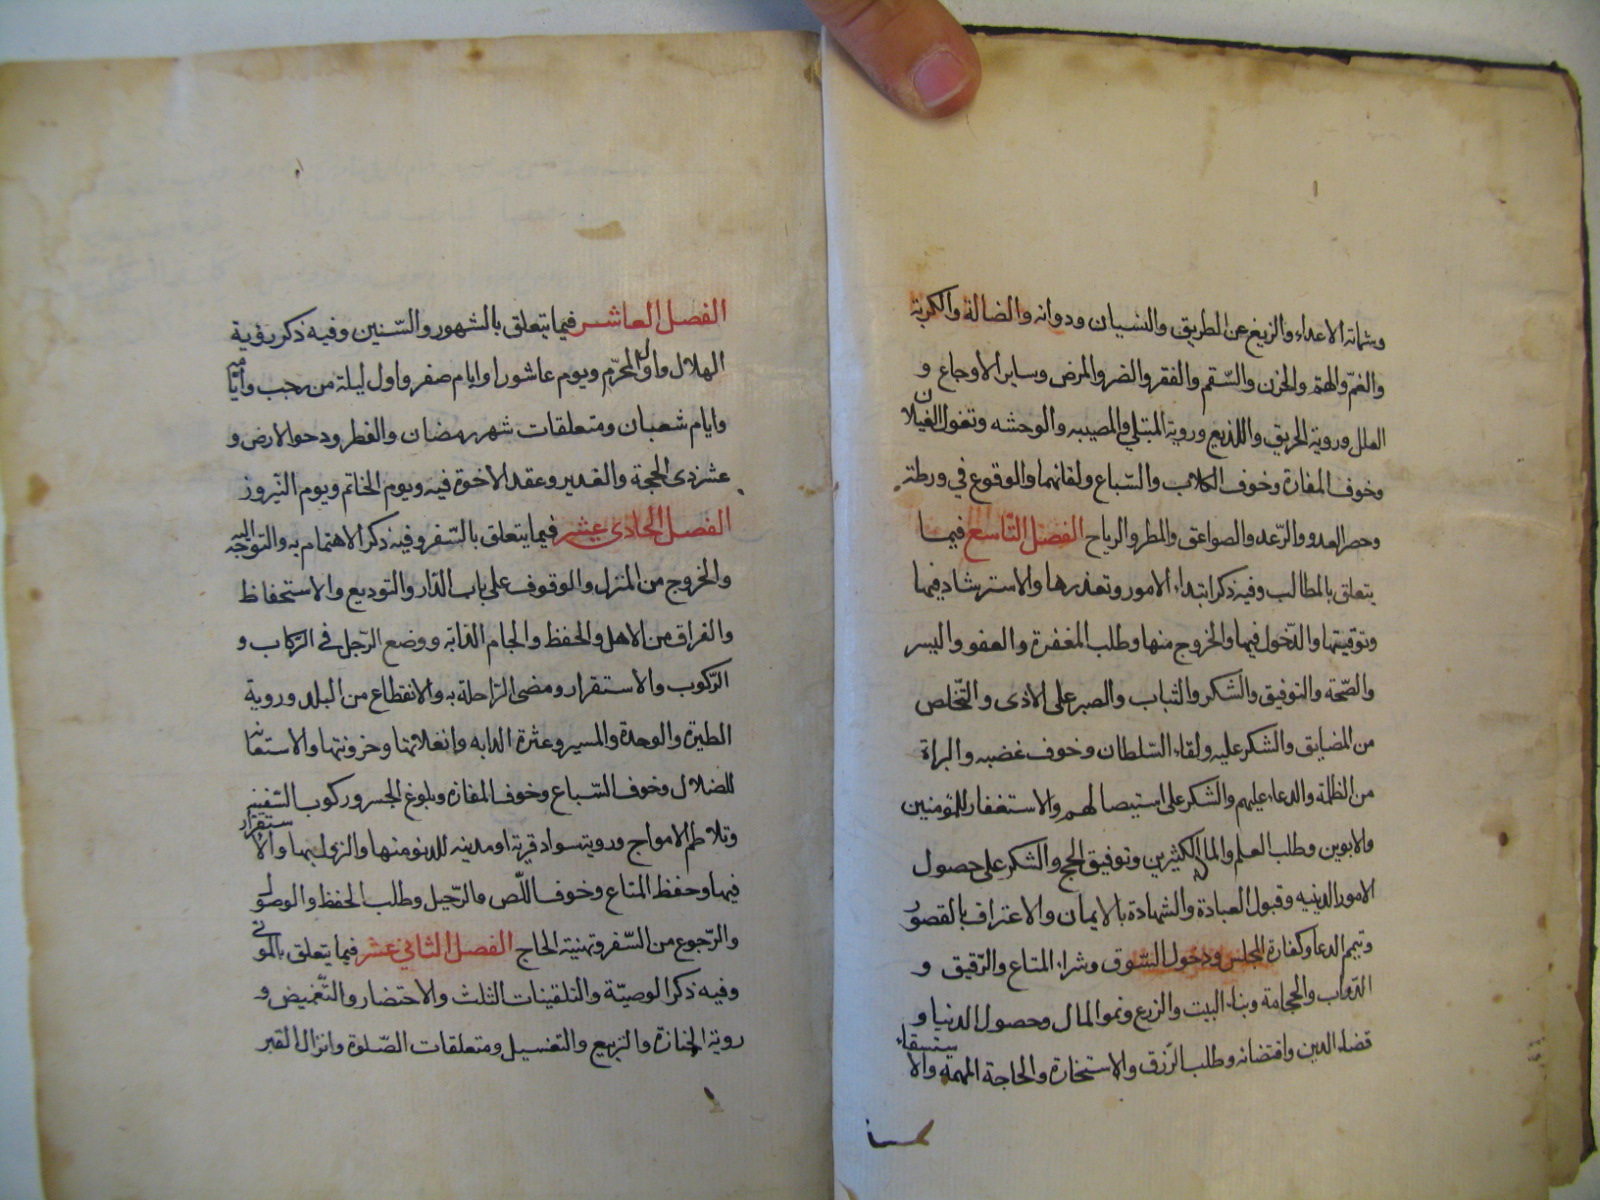 وشماتة الاعداء والزيغ عن الطريق والنسيان ودوائه والضالة والكربة
والغمّ والهمّ والحزن والسّقم والفقر والضر والمرض وساير الاوجاع و
العلل ورؤية الحريق واللذيع وروية المبتلى والمصيبه والوحشه وتغول الغيلان
وخوف المفازة وخوف الكلاب والسّباع ولقائهما والوقوع في ورطة
وحصر العدو والرّعد والصواعق والمطر والرياح الفصل التّاسع فيما
يتعلق بالمطالب وفيه ذكر ابتداء الامور وتعذرها والاسترشاد فيها
وتوقيتها والدّخول فيها والخروج منها وطلب المغفرة والعفو واليسر
والصّحة والتوفيق والشكر والثبات والصبر على الاذى والتّخلص
من المضايق والشكر عليه ولقاء السّلطان وخوف غضبه والبراة
من الظلمة والدعاء عليهم والشكر على استيصالهم والاستغفار للمؤمنين
والابوين وطلب العلم والمال الكثيرين وتوفيق الحج والشكر على حصول
الامور الدينيه وقبول العبادة والشهادة بالايمان والاعتراف بالقصور
وتتميم الدعا وكفارة المجلس ودخول السّوق وشراء المتاع والرّقيق و
الدّواب والحجامة وبناء البيت والزرع ونمو المال وحصول الدنيا و
قضاء الدين واقتضائه وطلب الرّزق والاستخارة والحاجة المهمة والاستسقاء
الفصل العاشر فيما يتعلق بالشهور والسّنين وفيه ذكر رؤية
الهلال واول المحرّم ويوم عاشورا وايام صفر واول ليلة من رجب وايّامه
وايام شعبان ومتعلقات شهر رمضان والفطر ودحو الارض و
عشر ذى الحجة والغدير وعقد الاخوة فيه ويوم الخاتم ويوم النّيروز
الفصل الحادى عشر فيما يتعلق بالسّفر وفيه ذكر الاهتمام به والتوجّه اليه
والخروج من المنزل والوقوف على باب الدّار والتوديع والاستحفاظ
والفراق من الاهل والحفظ والجام الدّابة ووضع الرّجل في الرّكاب و
الرّكوب والاستقرار ومضى الرّاحلة به والانقطاع من البلد وروية
الطيرة والوحدة والمسير وعثرة الدابه وانفلاتها وحزونتها والاستعانة
للضلال وخوف السّباع وخوف المفازة وبلوغ الجسر وركوب السّفينة
وتلاطم الامواج وروية سواد قرية او مدينه للدنو منها والنزول بها والاستقرار
فيها وحفظ المتاع وخوف اللّص والرّحيل وطلب الحفظ والوصول
والرّجوع من السّفر وتهنية الحاج الفصل الثاني عشر فيما يتعلق بالموتى
وفيه ذكر الوصيّة والتلقينات الثلث والاحتضار والتّغميض و
روية الجنازة والتربيع والتغسيل ومتعلقات الصّلوة وانزال القبر